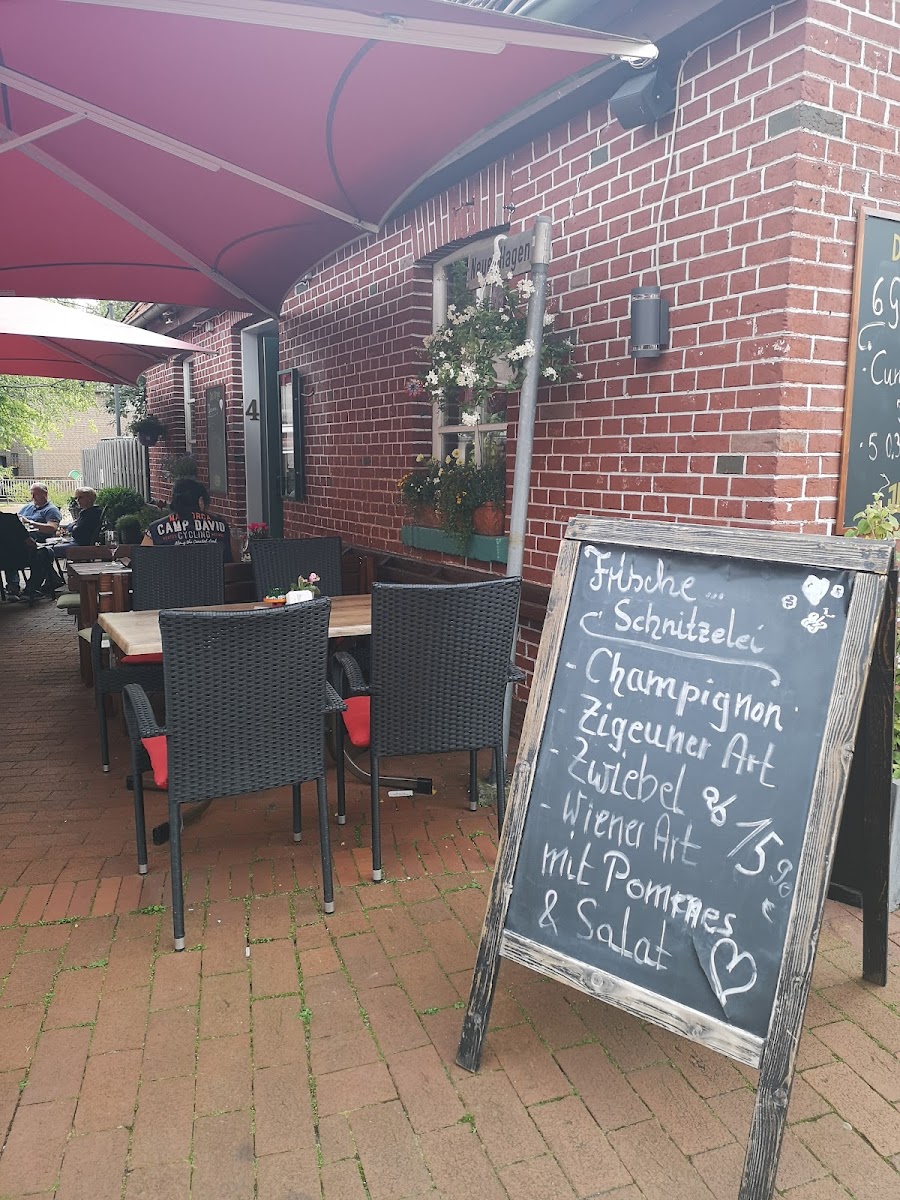 Neuer Hagen
4
CAMP DAVID
CYCLING
D
6 G
Cur
5 0,3
Frische ...
Schnitzelei
- Champignon
- Zigeuner Art
- Zwiebel
- Wiener Art
15 90 €
mit Pommes
& Salat